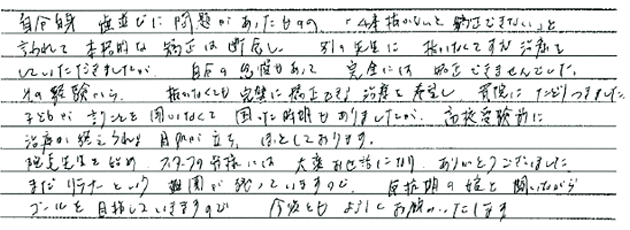 自分自身 歯並びに問題があったものの、「4本抜かないと矯正できない」と
言われて本格的な矯正は断念し、別の先生に抜かなくてすむ治療を
していただきましたが、自分の態度もあって完全には矯正できませんでした。
その経験から、抜かなくても完璧に矯正できる治療を希望し、貴院にたどりつきました。
子どもが言うことを聞いなくて困った時期もありましたが、高校受験前に
治療が終えられる目処が立ち、ほっとしております。
院長先生を始め、スタッフの皆様には大変お世話になり、ありがとうございました。
まだリテーナーという難関が残っていますので、反抗期の娘と闘いながら
ゴールを目指していきますので今後ともよろしくお願いいたします